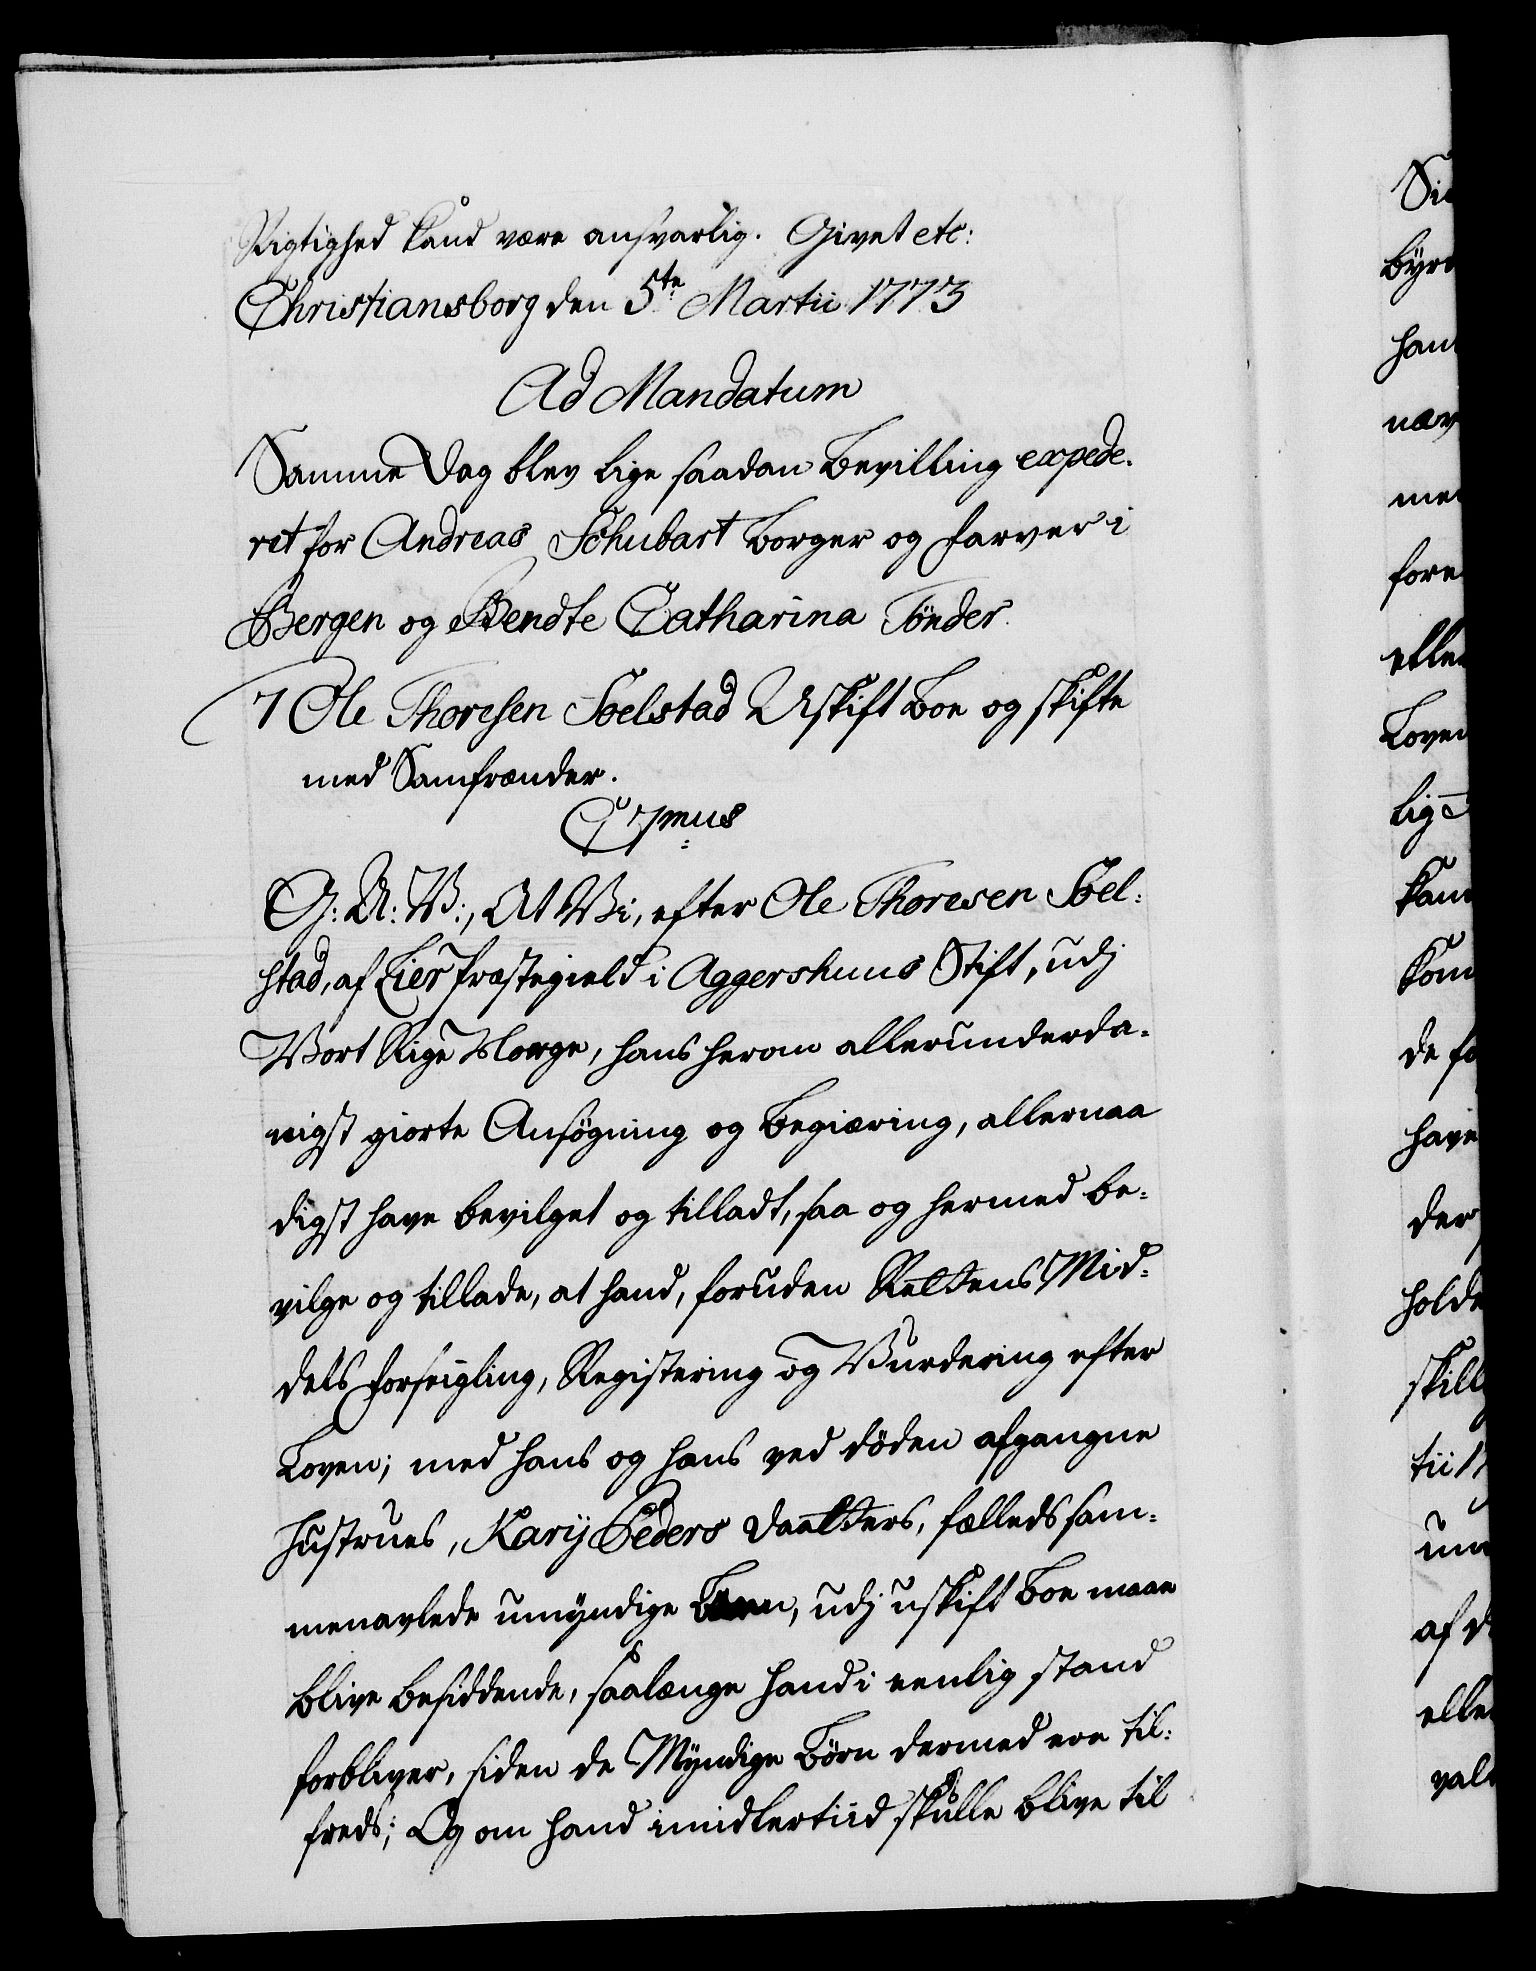 Rigtighed kand være ansvarlig. Givet etc:
Christiansborg den 5te Martii 1773
Ad Mandatum
Samme Dag blev lige saadan Bevilling expede-
ret for Andreas Schubart Borger og Farver i
Bergen og Bendte Catharina Tönder.
7 Ole Thoresen Soelstad Uskift Boe og skifte
med Samfrænder.
C 7mus
G: A: V:, At Vi, efter Ole Thoresen Soel-
stad, af Lier Præstegield i Aggershuus Stift, udj
Vort Rige Norge, hans herom allerunderda-
nigst giorte Ansøgning og Begiæring, allernaa
digst have bevilget og tilladt, saa og hermed be-
vilge og tillade, at hand, foruden Rettens Mid-
dels Forseigling, Registering og Vurdering efter
Loven; med hans og hans ved døden afgangne
Hustrues, Karij Peders Daatters, fælleds sam-
menavlede umyndige Børn, udj uskift Boe maae
blive besiddende, saalænge hand i eenlig stand
forbliver, siden de Myndige Børn dermed ere til-
freds; Og om hand imidlertiid skulle blive til
Si
byr
han
nær
me
fore
elle
Loven
lig
kan
kom
de fo
have
der
holde
skill
tii 17
un
af d
elle
val